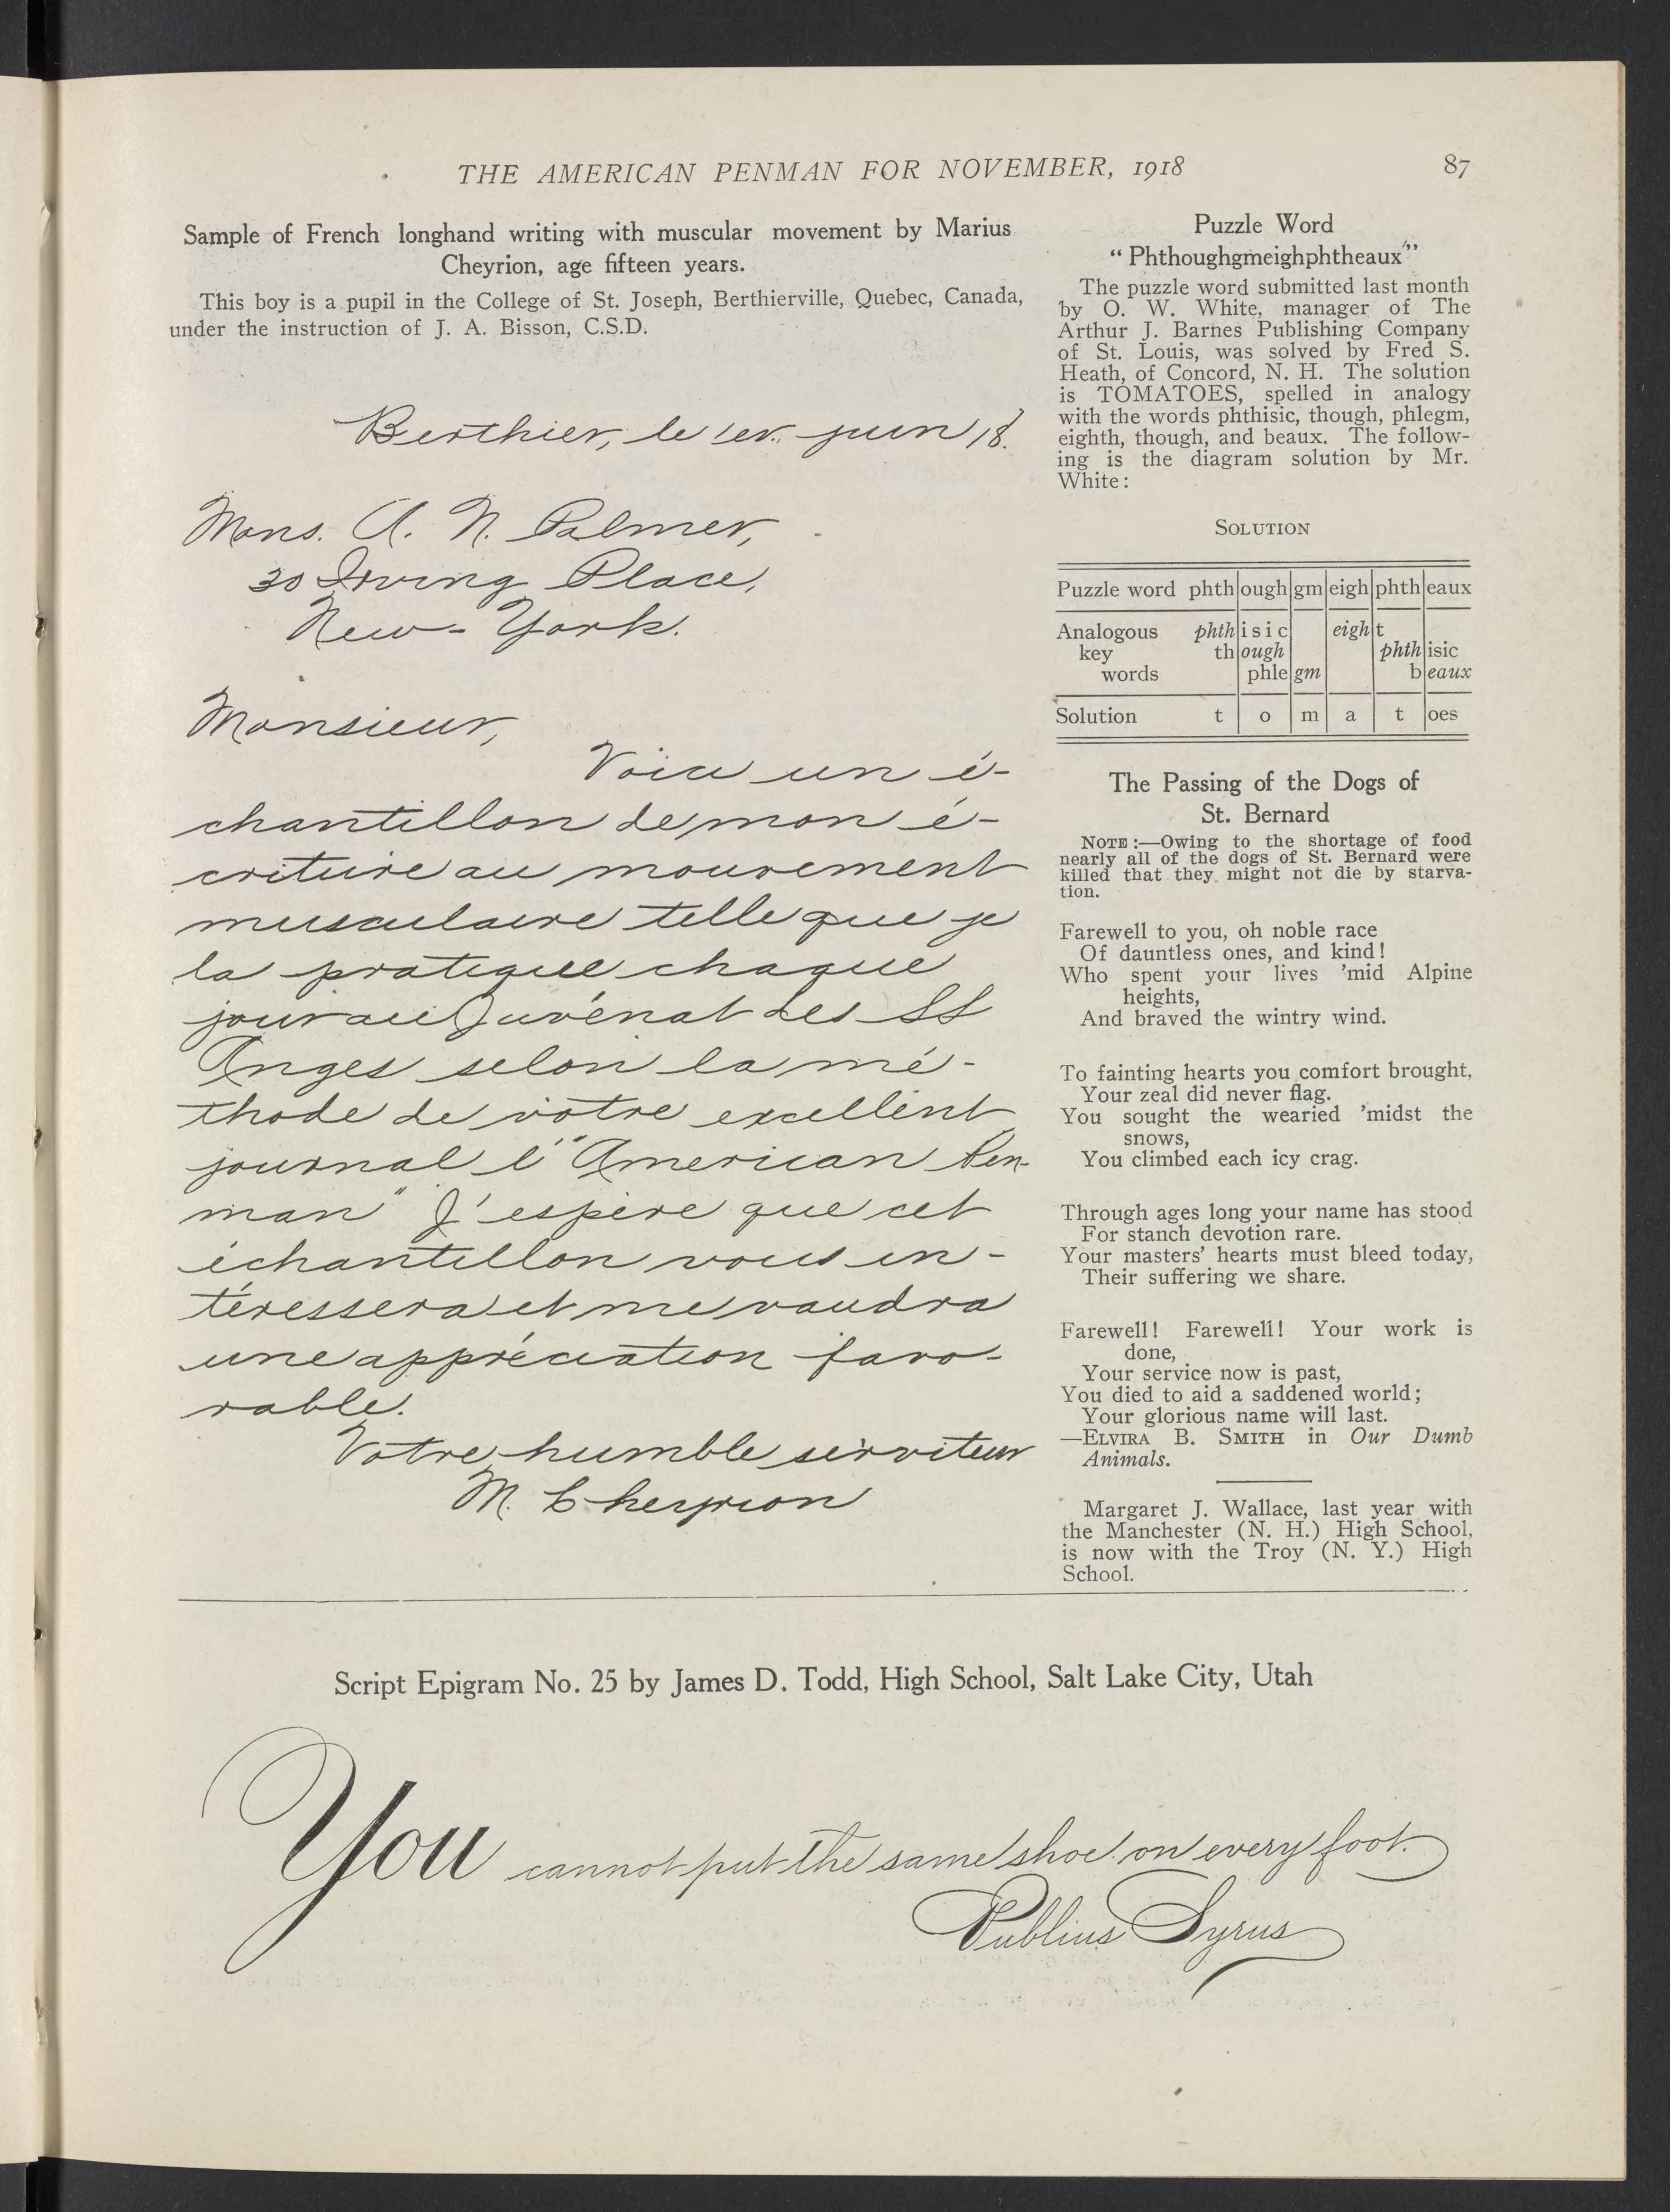 THE AMERICAN PENMAN FOR NOVEMBER, 1918
87
Sample of French longhand writing with muscular movement by Marius
Cheyrion, age fifteen years.
This boy is a pupil in the College of St. Joseph, Berthierville, Quebec, Canada,
under the instruction of J. A. Bisson, C.S.D.
Berthier, le 1er. juin 18.
Mons. A. N. Palmer,
30 Irving Place,
New-York.
Monsieur,
Voici un é-
chantillon de mon é-
criture au mouvement
musculaire telle que je
la pratique chaque
jour au Juvénat des SS
Anges selon la mé-
thode de votre excellent
journal l'"American Pen-
man" J'espère que cet
échantillon vous in-
téressera et me vaudra
une appréciation favo-
rable.
Votre humble serviteur
M. Cheyrion
Puzzle Word
"Phthoughgmeighphtheaux"
The puzzle word submitted last month
by O. W. White, manager of The
Arthur J. Barnes Publishing Company
of St. Louis, was solved by Fred S.
Heath, of Concord, N. H. The solution
is TOMATOES, spelled in analogy
with the words phthisic, though, phlegm,
eighth, though, and beaux. The follow-
ing is the diagram solution by Mr.
White:
SOLUTION
Puzzle word phth ough gm eigh phth eaux
Analogous phth isic eigh t
key th ough phth isic
words phle gm b eaux
Solution t o m a t oes
The Passing of the Dogs of
St. Bernard
NOTE:—Owing to the shortage of food
nearly all of the dogs of St. Bernard were
killed that they might not die by starva-
tion.
Farewell to you, oh noble race
Of dauntless ones, and kind!
Who spent your lives 'mid Alpine
heights,
And braved the wintry wind.
To fainting hearts you comfort brought,
Your zeal did never flag.
You sought the wearied 'midst the
snows,
You climbed each icy crag.
Through ages long your name has stood
For stanch devotion rare.
Your masters' hearts must bleed today,
Their suffering we share.
Farewell! Farewell! Your work is
done,
Your service now is past,
You died to aid a saddened world;
Your glorious name will last.
—ELVIRA B. SMITH in Our Dumb
Animals.
Margaret J. Wallace, last year with
the Manchester (N. H.) High School,
is now with the Troy (N. Y.) High
School.
Script Epigram No. 25 by James D. Todd, High School, Salt Lake City, Utah
You cannot put the same shoe on every foot.
Publius Syrus